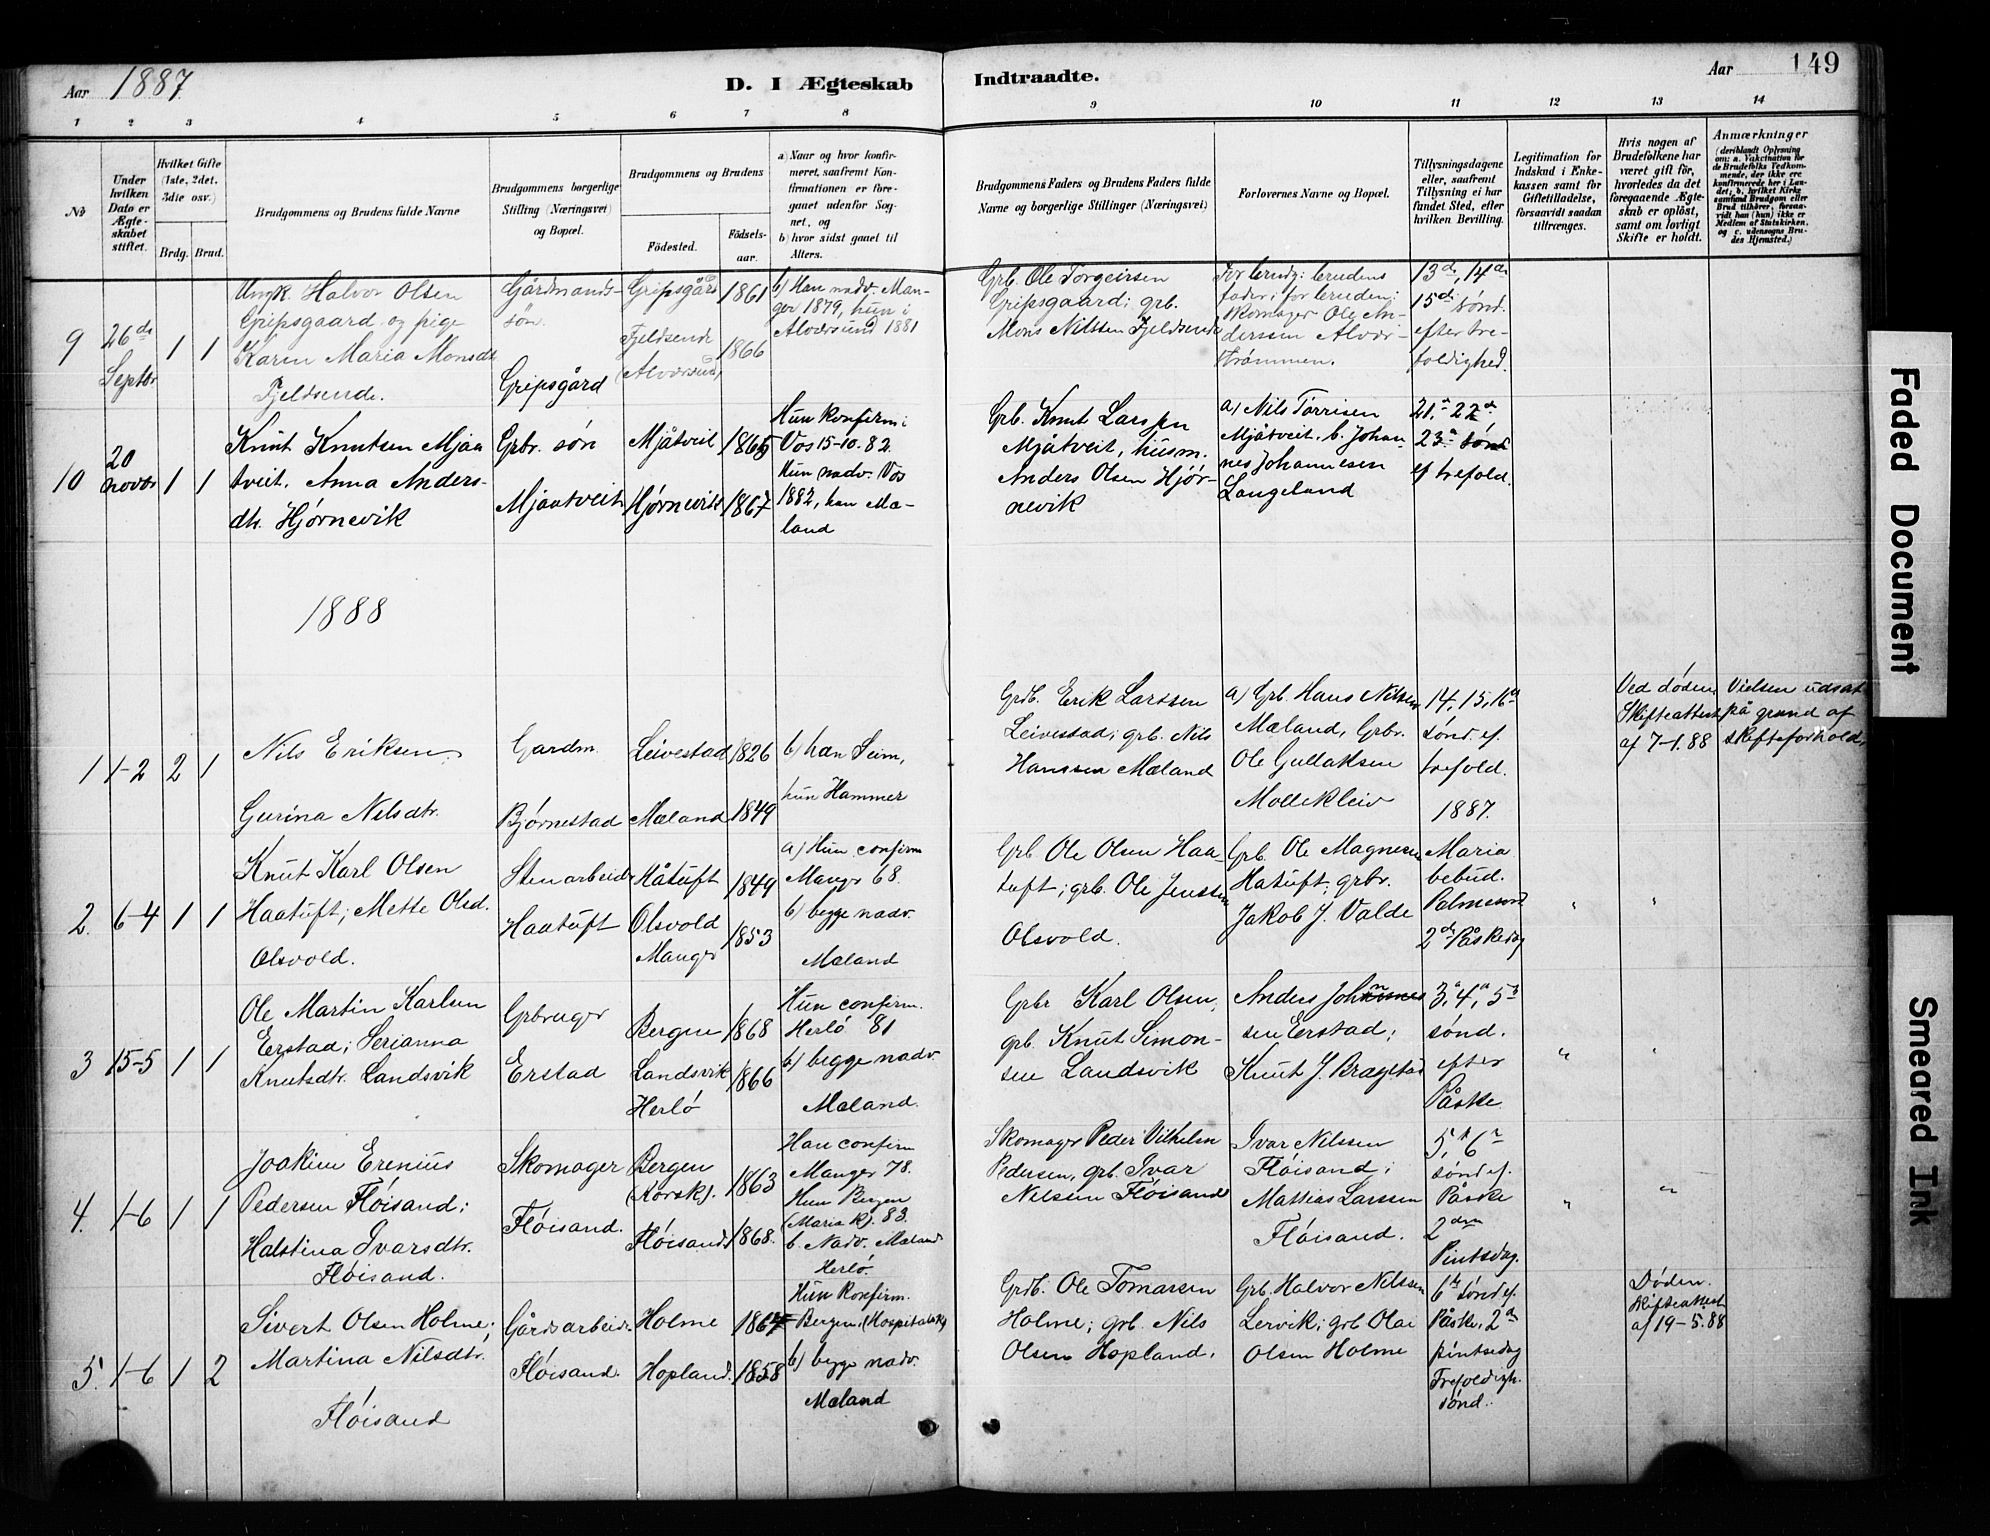 Aar 1887.
D. I Ægteskab Indtraadte.
Aar 149
1 2 3 4 5 6 7 8 9 10 11 12 13 14
No
Under hvilken Dato er Ægteskabet stiftet.
Hvilket Gifte (1ste, 2det, 3die osv.)
Brdg. Brud.
Brudgommens og Brudens fulde Navne
Brudgommens borgerlige Stilling (Næringsvei) og Bopæl.
Brudgommens og Brudens
Fødested.
Fødsels-aar.
a) Naar og hvor konfirmeret, saafremt Konfirmationen er foregaaet udenfor Sognet, og
b) hvor sidst gaaet til Alters.
Brudgommens Faders og Brudens Faders fulde Navne og borgerlige Stillinger (Næringsvei)
Forlovernes Navne og Bopæl.
Tillysningsdagene eller, saafremt Tillysning ei har fundet Sted, efter hvilken Bevilling.
Legitimation for Indskud i Enkekassen samt for Giftetilladelse, forsaavidt saadan tiltrænges.
Hvis nogen af Brudefolkene har været gift før, hvorledes da det foregaaende Ægteskab er opløst, samt om lovligt Skifte er holdt.
Anmærkninger
(deriblandt Oplysning om: a. Vakcination for de Brudefolks Vedkommende, der ikke ere konfirmerede her i Landet; b. hvilket Kirkesamfund Brudgom eller Brud tilhører, forsaavidt han (hun) ikke er Medlem af Statskirken, og c. udensogns Brudes Hjemsted.)
9 26de Septbr 1 1
Ungk. Halvor Olsen
Gripsgaard og pige
Karen Maria Monsdr
Fjeldsende.
Gårdmands-
søn.
Gripsgård
Gripsgård 1861
Fjeldsende 1866
(Alversund)
b) Han nadv. Man-
ger 1879, hun i
Alversund 1881
Grb. Ole Torgeirsen
Gripsgaard; grb.
Mons Nilssen Fjeldsende
For brudg: brudens
fader; for bruden:
Skomager Ole An-
derssen Alver-
strømmen.
13de, 14de
15de sønd.
efter tre-
foldighed.
10 20 novbr 1 1
Knut Knutsen Mjaa
tveit. Anna Anders-
dtr. Hjørnevik
Grbr. søn
Mjaatveit
Mjåtveit 1865
Hjørnevik 1867
Hun konfirm i
Vos 15-10. 82.
Hun nadv. Vos
1882, han Mæ-
land
Grb. Knut Larssen
Mjåtveit, husm.
Anders Olsen Hjør-
nevik
a) Nils Torrisen
Mjåtveit. b. Johan-
nes Johannesen
Langeland
21. 22de
23de sønd
ef trefold.
1888
1 1-2 2 1
Nils Eriksen,
Gurina Nilsdtr.
Gardm.
Bjørnestad
Leivestad 1826
Mæland 1849
b) han Seim,
hun Hammer
Grdb. Erik Larssen
Leivestad; grb. Nils
Hanssen Mæland
a) Grb. Hans Nilsen
Mæland, Grbr.
Ole Gullaksen
Mollekleiv
14, 15, 16de
sønd. ef.
trefold.
1887.
Ved døden
Skifteattest
af 7-1. 88
Vielsen udsat
på grund af
skifteforhold.
2. 6-4 1 1
Knut Karl Olsen
Haatuft; Mette Olsd.
Olsvold.
Stenarbeid.
Haatuft
Håtuft 1849
Olsvold
Manger 1853
a) Hun confirm
Manger 68.
b) begge nadv.
Mæland
Grb. Ole Olsen Haa-
tuft; grb. Ole Jenssen
Olsvold.
Grb. Ole Magnesen
Hatuft; grbr.
Jakob J. Valde
Maria
bebud.
Palmesønd
2de Påskedag
" "
3 15-5 1 1
Ole Martin Karlsen
Erstad; Serianna
Knutsdtr. Landsvik
Grbruger
Erstad
Bergen 1868
Landsvik 1866
Herlø
Hun confirm.
Herlø 81
b) begge nadv.
Mæland.
Grbr Karl Olsen,
grb. Knut Simon-
sen Landsvik
Anders Johannes
sen Erstad;
Knut J. Brægstad
3, 4, 5te
sønd.
efter
Påske.
" "
4. 1-6 1 1
Joakim Erenius
Pedersen Fløisand;
Halstina Ivarsdtr.
Fløisand.
Skomager
Fløisand.
Bergen 1863
(Korsk).
Fløisand. 1868.
Han confirm
Manger 78.
Hun Bergen
(Maria K). 83.
b. Nadv. Mæland
Herlø.
Skomager Peder Vilhelm
Pedersen, grb. Ivar
Nilsen Fløisand
Ivar Nilssen
Fløisand;
Mathias Larssen
Fløisand.
5, 6
sønd ef.
Påske
2den
Pintsdag.
" "
5. 1-6 1 2
Sivert Olsen Holme;
Martina Nilsdtr.
Fløisand
Gårdsarbeid.
Fløisand.
Holme 1864
Hopland. 1858
Hun konfirm.
Bergen. (Hospitalsk)
b) begge nadv.
Mæland
Grdb. Ole Tomassen
Holme; grb. Nils
Olsen Hopland.
Grb. Halvor Nilssen
Lervik; grb Olai
Olsen Holme
6te sønd ef.
Påske, 2den
pintsedag
Trefoldigh.
sønd.
Døden.
Skifteattest
af 19-5. 88
Faded Document
Smeared Ink